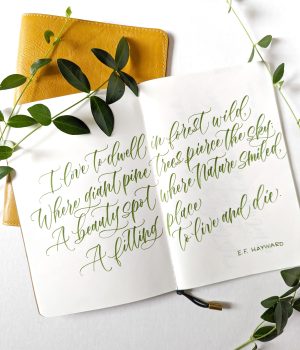 I love to dwell in forest wild,
Where giant pine trees pierce the sky,
A beauty spot where Nature smiled,
A fitting place to live and die.
E.F. HAYWARD